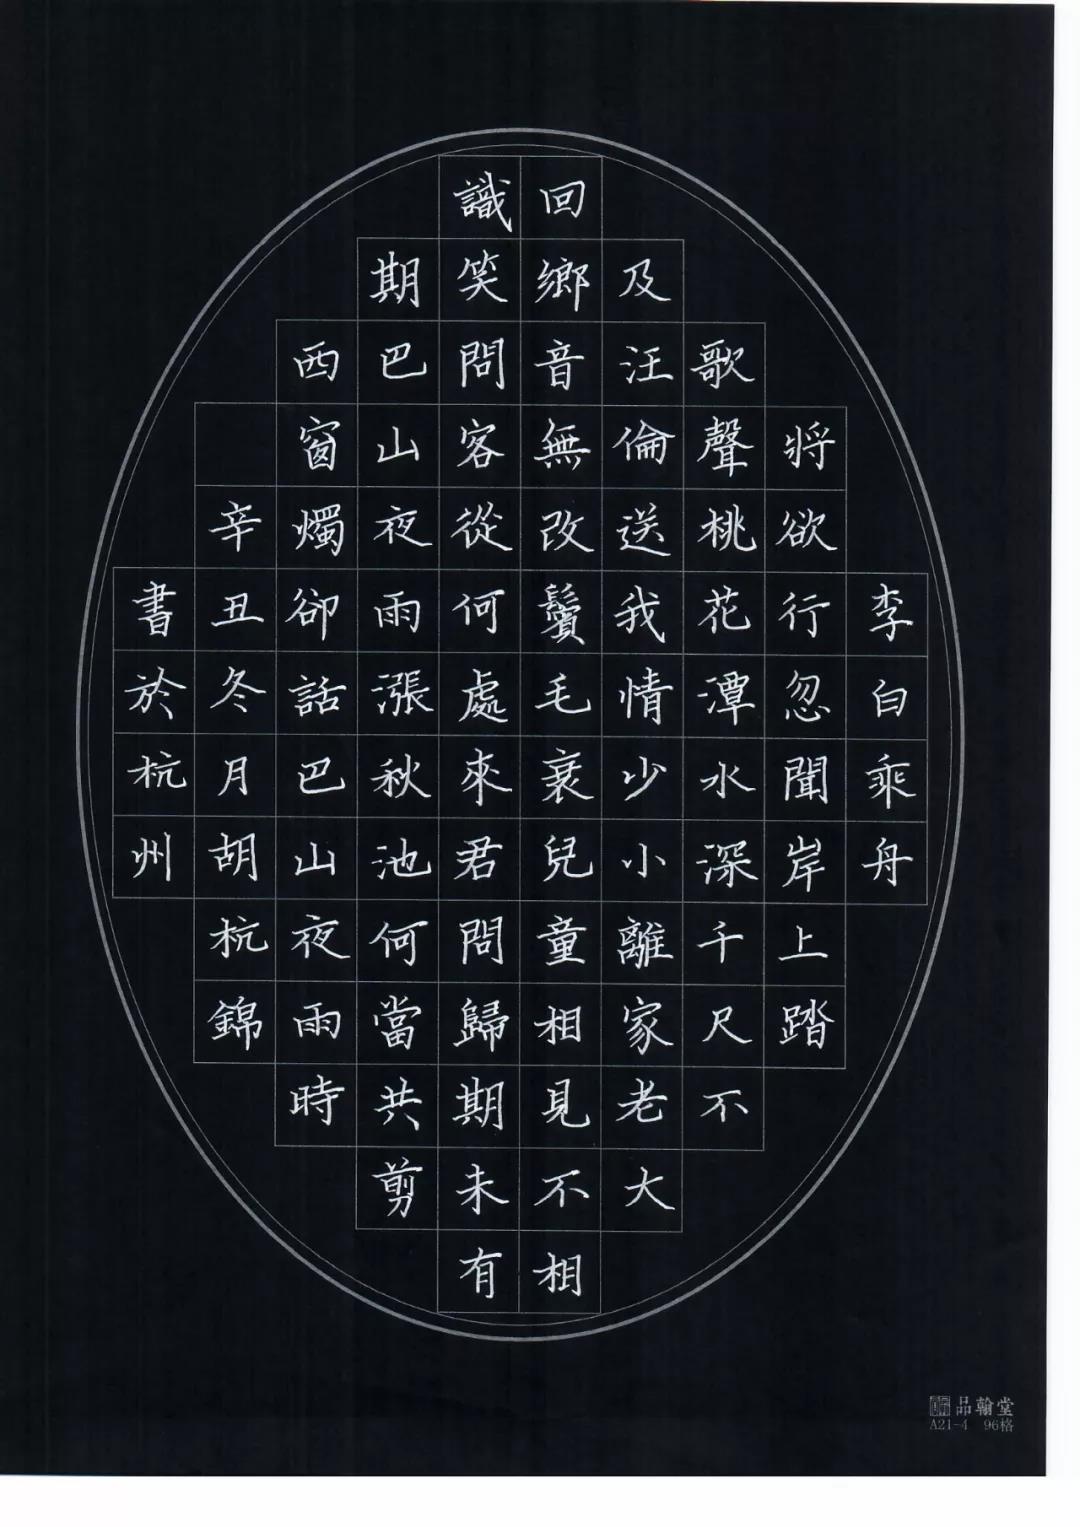 李白乘舟
將欲行忽聞岸上踏
歌聲桃花潭水深千尺不
及汪倫送我情少小離家老大
回鄉音無改鬢毛衰兒童相見不相
識笑問客從何處來君問歸期未有
期巴山夜雨漲秋池何當共剪
西窗燭卻話巴山夜雨時
辛丑冬月胡杭錦
書於杭州
品翰堂
A21-4 96格